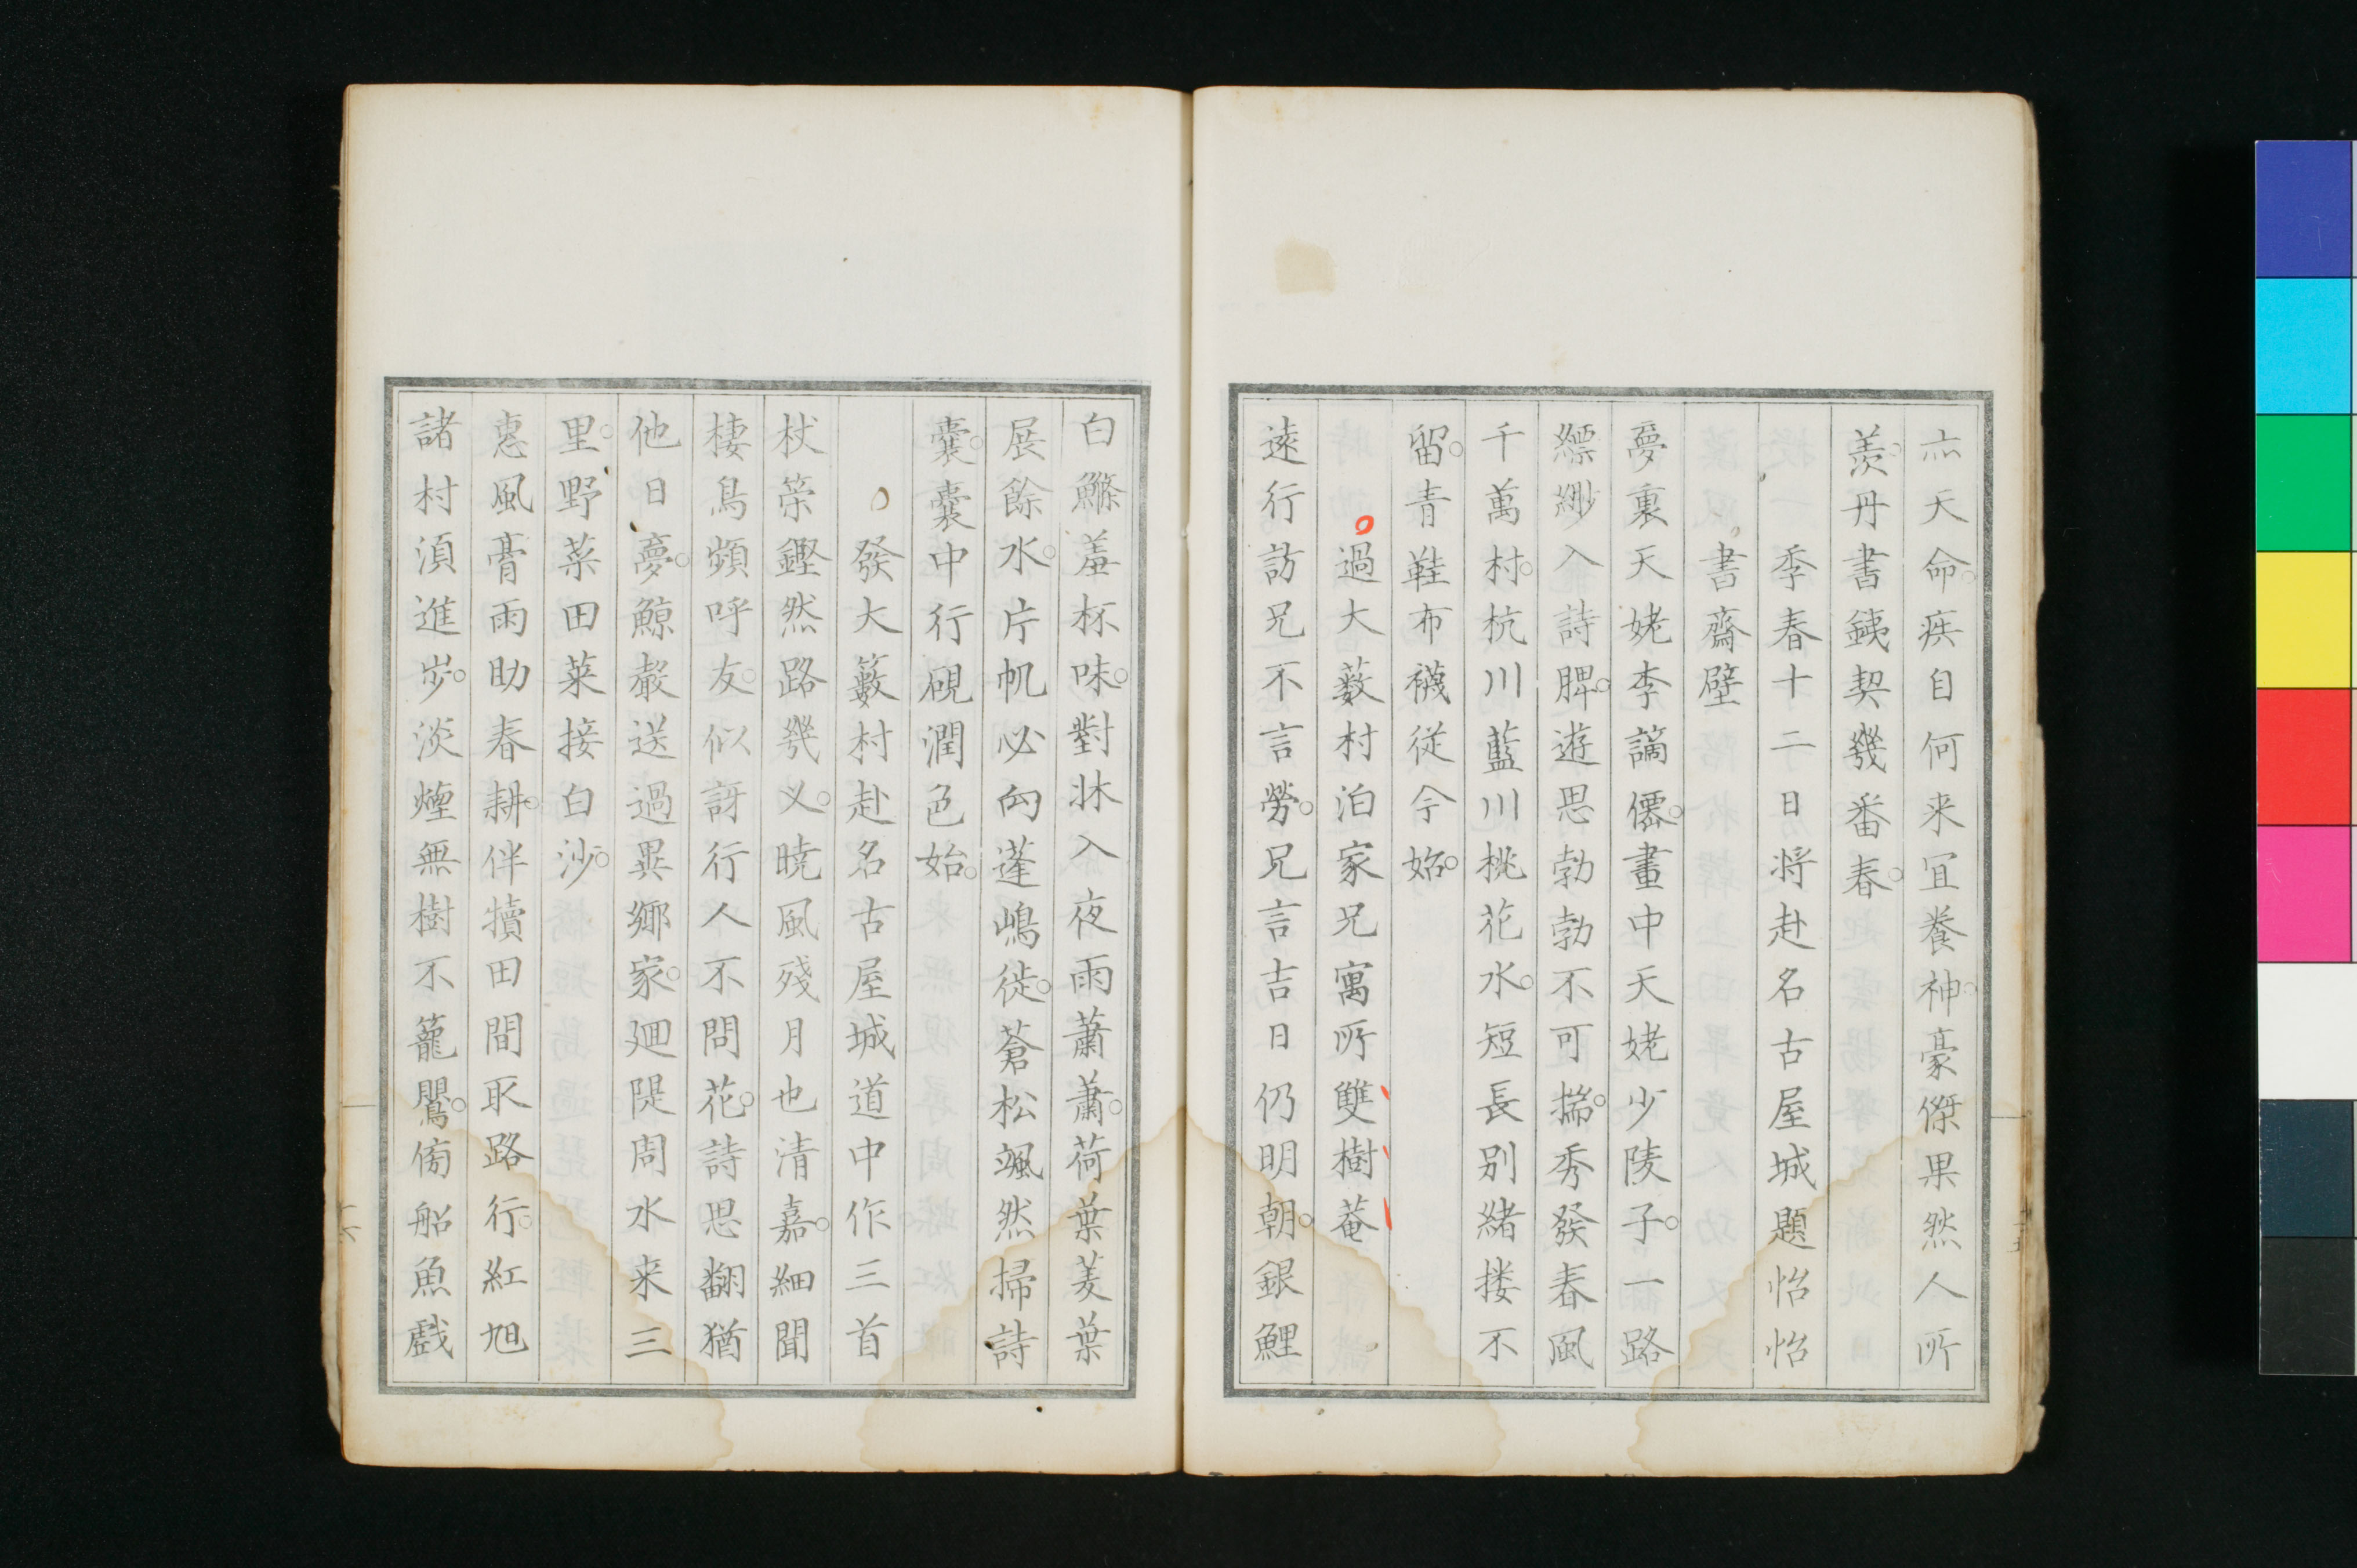 亦天命疾自何来宜養神豪傑果然人所
羨丹書鐵契幾番春
季春十二日将赴名古屋城題怡怡
書齋壁
夢裏天姥李謫僊畫中天姥少陵子一路
縹緲入詩脾遊思勃勃不可揣秀發春風
千萬村杭川藍川桃花水短長別緒搂不
留青鞋布襪從今始
過大薮村泊家兄寓所雙樹菴
遠行訪兄不言勞兄言吉日仍明朝銀鯉
白鰷羞杯味對牀入夜雨蕭蕭荷葉菱葉
展餘水片帆必向蓬嶋徙蒼松颯然掃詩
囊囊中行硯潤色始
發大籔村赴名古屋城道中作三首
杖策鏗然路幾义曉風殘月也清嘉細聞
棲鳥頻呼友似訝行人不問花詩思翩猶
他日夢鯨聲送過異鄉家廻隄周水来三
里野菜田菜接白沙
惠風膏雨助春耕伴犢田間取路行紅旭
諸村湏進歩淡煙無樹不籠鸎傍船魚戲
十五
十六